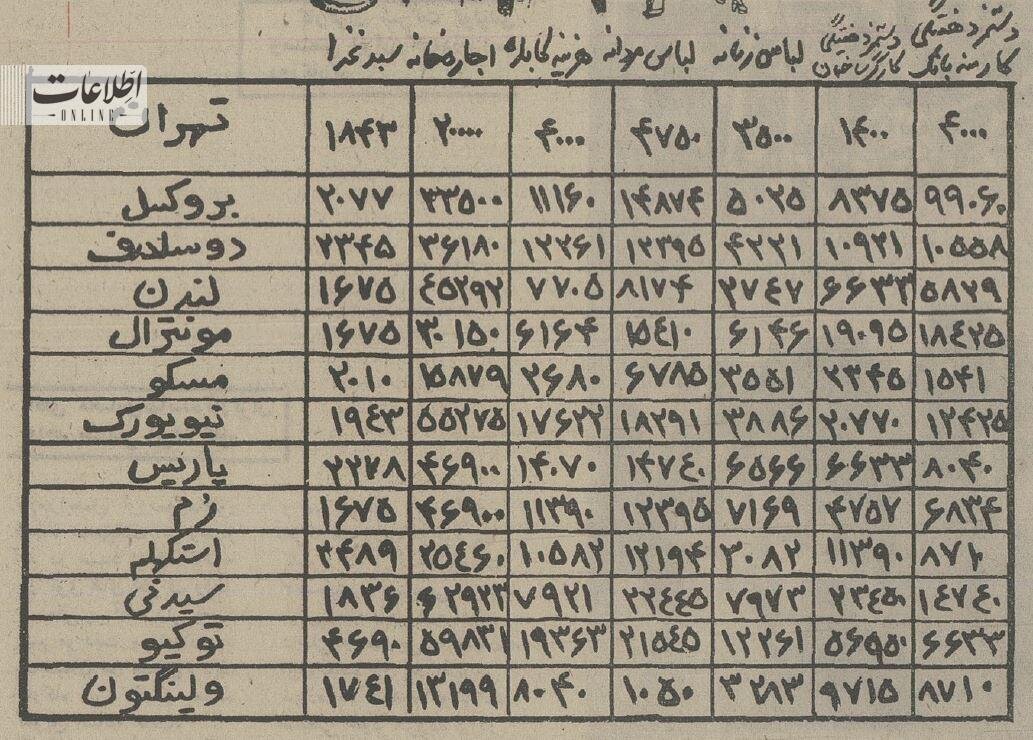 دستمزد هفتگی دستمزد هفتگی
کارمند بانک کارگر ساختمان لباس زنانه لباس مردانه هزینه اجاره خانه سبد غذا
اطلاعات
ONLINE
۴۰۰۰ ۱۴۰۰ ۳۵۰۰ ۴۷۵۰ ۴۰۰۰ ۲۰۰۰۰ ۱۸۴۳ تهران
۹۹۰۶۰ ۸۳۷۵ ۵۰۲۵ ۱۴۸۷۴ ۱۱۱۶۰ ۳۳۵۰۰ ۲۰۷۷ بروکسل
۱۰۵۵۸ ۱۰۹۲۱ ۴۲۲۱ ۱۲۳۹۵ ۱۲۲۶۱ ۳۶۱۸۰ ۲۳۴۵ دوسلدف
۵۸۲۹ ۶۶۳۳ ۲۷۴۷ ۸۱۷۴ ۷۷۰۵ ۴۵۲۹۲ ۱۶۷۵ لندن
۱۸۴۲۵ ۱۹۰۹۵ ۶۱۴۶ ۱۵۴۱۰ ۶۱۶۴ ۳۰۱۵۰ ۱۶۷۵ مونترال
۱۵۴۱ ۲۳۴۵ ۳۵۵۱ ۶۷۸۵ ۲۶۸۰ ۱۵۸۷۹ ۲۰۱۰ مسکو
۱۲۴۲۵ ۲۰۷۷۰ ۳۸۸۶ ۱۸۲۹۱ ۱۷۶۲۲ ۵۵۲۷۵ ۱۹۴۳ نیویورک
۸۰۴۰ ۶۶۳۳ ۶۵۶۶ ۱۴۷۴۰ ۱۴۰۷۰ ۴۶۹۰۰ ۲۲۷۸ پاریس
۶۸۳۴ ۴۷۵۷ ۷۱۶۹ ۱۲۳۹۵ ۱۱۳۹۰ ۴۶۹۰۰ ۱۶۷۵ رم
۸۷۱۰ ۱۱۳۹۰ ۳۰۸۲ ۱۲۱۹۴ ۱۰۵۸۲ ۲۵۴۶۰ ۲۴۸۹ استکهلم
۱۴۷۴۰ ۲۳۴۵۰ ۷۹۷۳ ۲۲۴۴۵ ۷۹۲۱ ۶۲۹۲۳ ۱۸۳۶ سیدنی
۶۶۳۳ ۵۶۹۵۰ ۱۲۲۶۱ ۲۱۵۴۵ ۱۹۳۶۳ ۵۹۸۳۱ ۴۶۹۰ توکیو
۸۷۱۰ ۹۷۱۵ ۳۲۸۳ ۱۰۵۰ ۸۰۴۰ ۱۳۱۹۹ ۱۷۴۱ ولینگتون